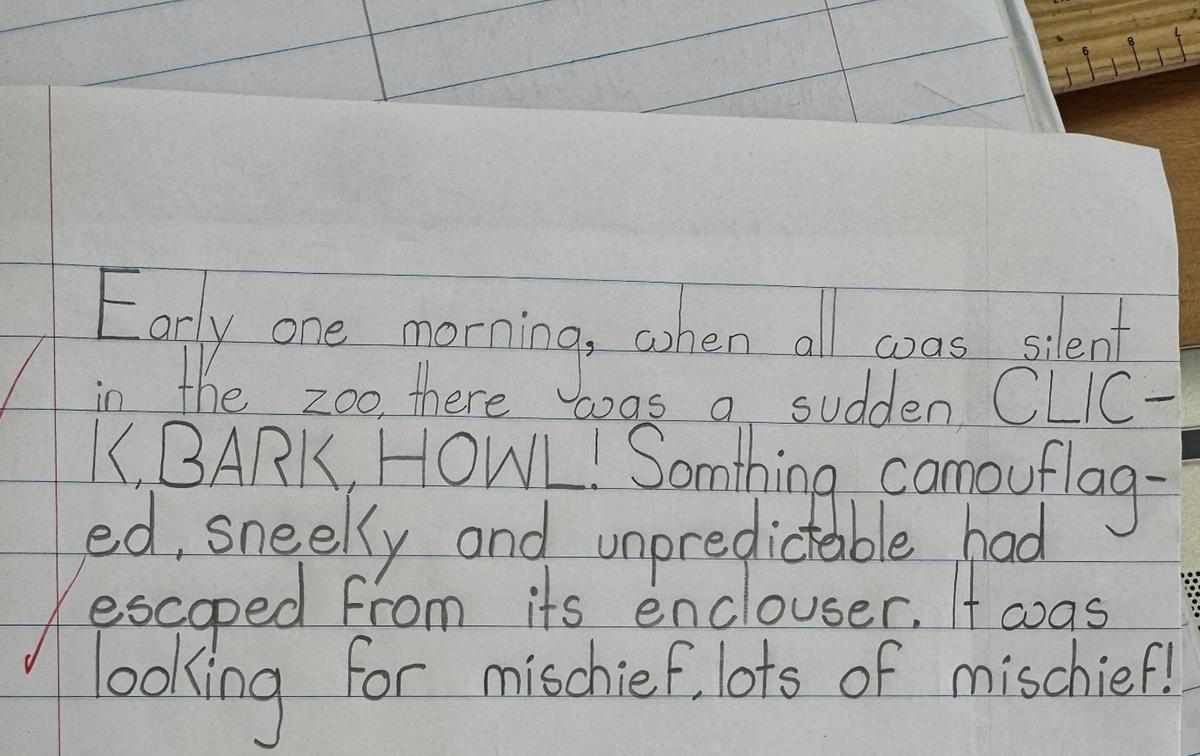 Early one morning, when all was silent
in the zoo, there was a sudden CLIC-
K, BARK, HOWL! Somthing camouflag-
ed, sneeky and unpredictable had
escaped from its enclouser. It was
looking for mischief, lots of mischief!